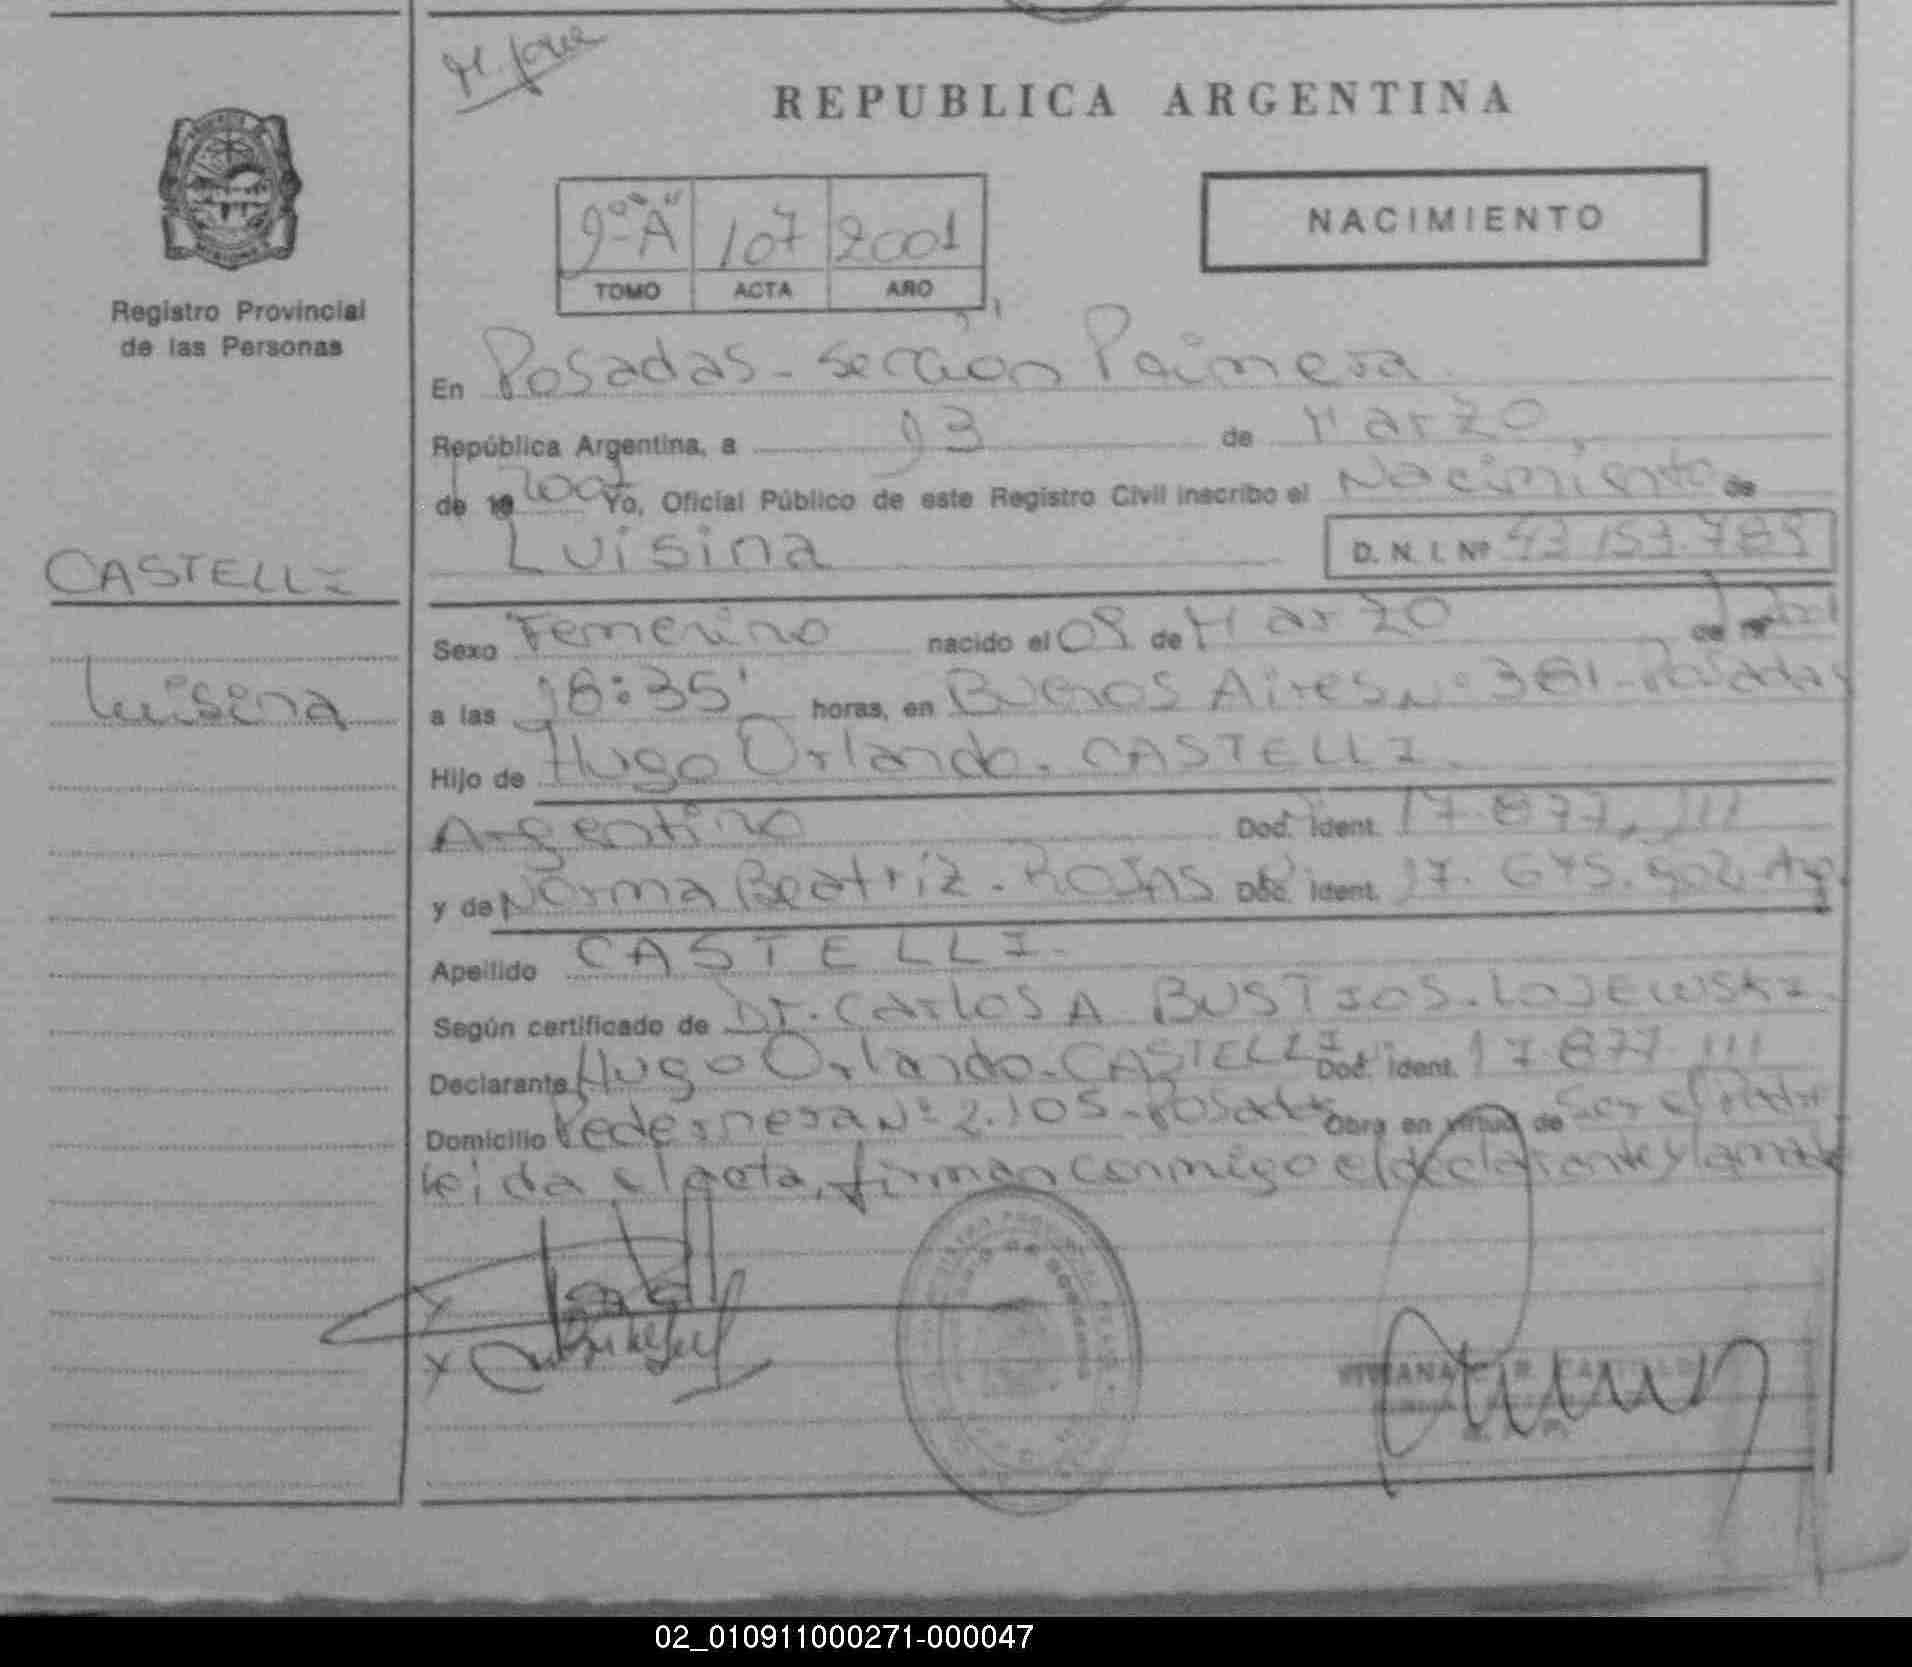 M. Jose
REPUBLICA ARGENTINA
NACIMIENTO
9º "A" 107 2001
TOMO ACTA AÑO
Registro Provincial
de las Personas
En Posadas - Sección Primera
República Argentina, a 13 de Marzo,
de 19 2001 Yo, Oficial Público de este Registro Civil inscribo el Nacimiento de
Luisina D. N. I. Nº 43.153.789
CASTELLI
Luisina
Sexo Femenino nacido el 09 de Marzo de
a las 18:35' horas, en Buenos Aires Nº 361 - Posadas
Hijo de Hugo Orlando. CASTELLI.
Argentino Doc. Ident. 17.877.111
y de Norma Beatriz. ROJAS Doc. Ident. 17.645.902 Arg.
Apellido CASTELLI.
Según certificado de Dr. Carlos A. BUSTIOS. LOJEWSKI.
Declarante Hugo Orlando. CASTELLI Doc. Ident. 17.877.111
Domicilio Pedernera Nº 2.105 - Posadas Obra en virtud de Ser el Padre
Leída el acta, firman conmigo el declarante y la madre
02_010911000271-000047